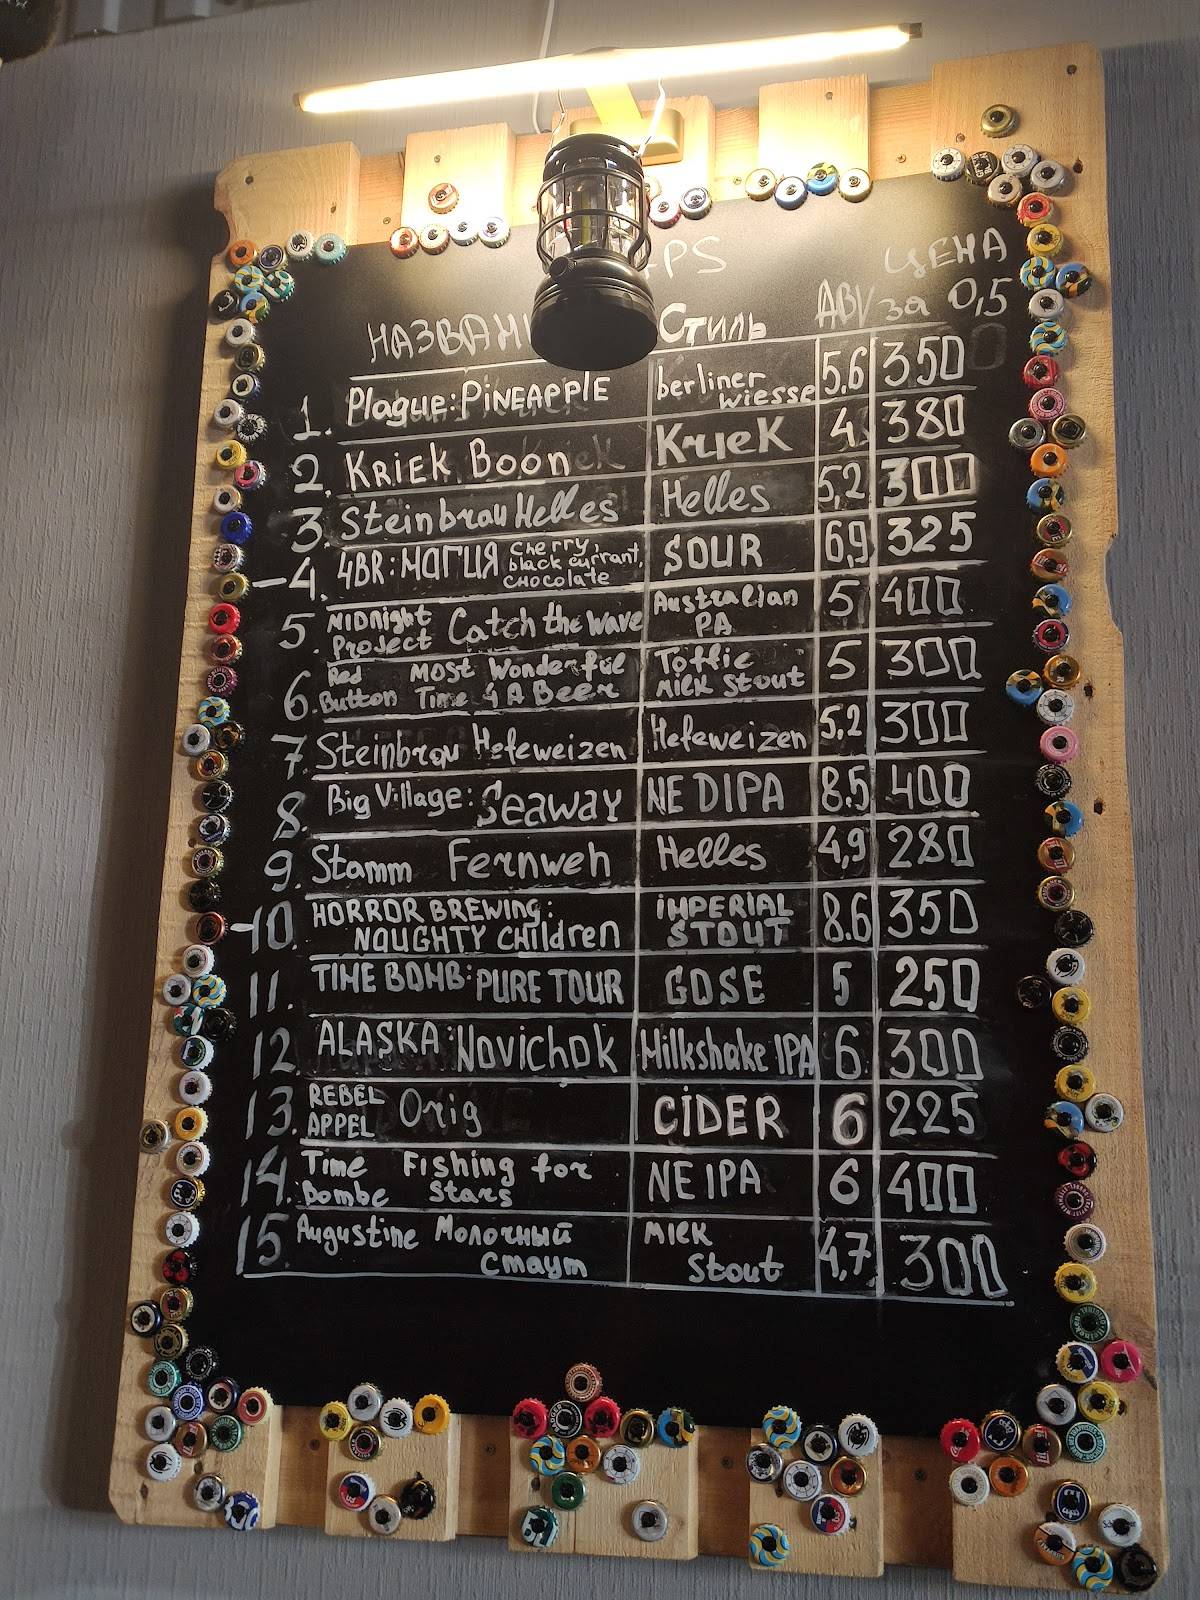 ЦЕНА
НАЗВАНИ Стиль ABV за 0,5
1. Plague: PiNEAPPlE berliner wiesse 5,6 350
2. KRiEK Boon KrieK 4 380
3. Steinbrau Helles Helles 5,2 300
4. 4BR: МАГИЯ cherry, black currant, chocolate SOUR 6,9 325
5. Midnight Project Catch the Wave Australian PA 5 400
6. Red Button Most Wonderful Time 4 A Beer Toffie Milk Stout 5 300
7. Steinbrau Hefeweizen Hefeweizen 5,2 300
8. Big Village: Seaway NE DIPA 8.5 400
9. Stamm Fernweh Helles 4,9 280
10. HORROR BREWING: NAUGHTY CHildren iMPERiAL STOUT 8.6 350
11. TIME BOMB: PURE TOUR GOSE 5 250
12. ALASKA: Novichok Milkshake IPA 6 300
13. REBEL APPEL Orig CiDER 6 225
14. Time Bombe Fishing for Stars NE IPA 6 400
15. Augustine Молочный Стаут Milk Stout 4,7 300